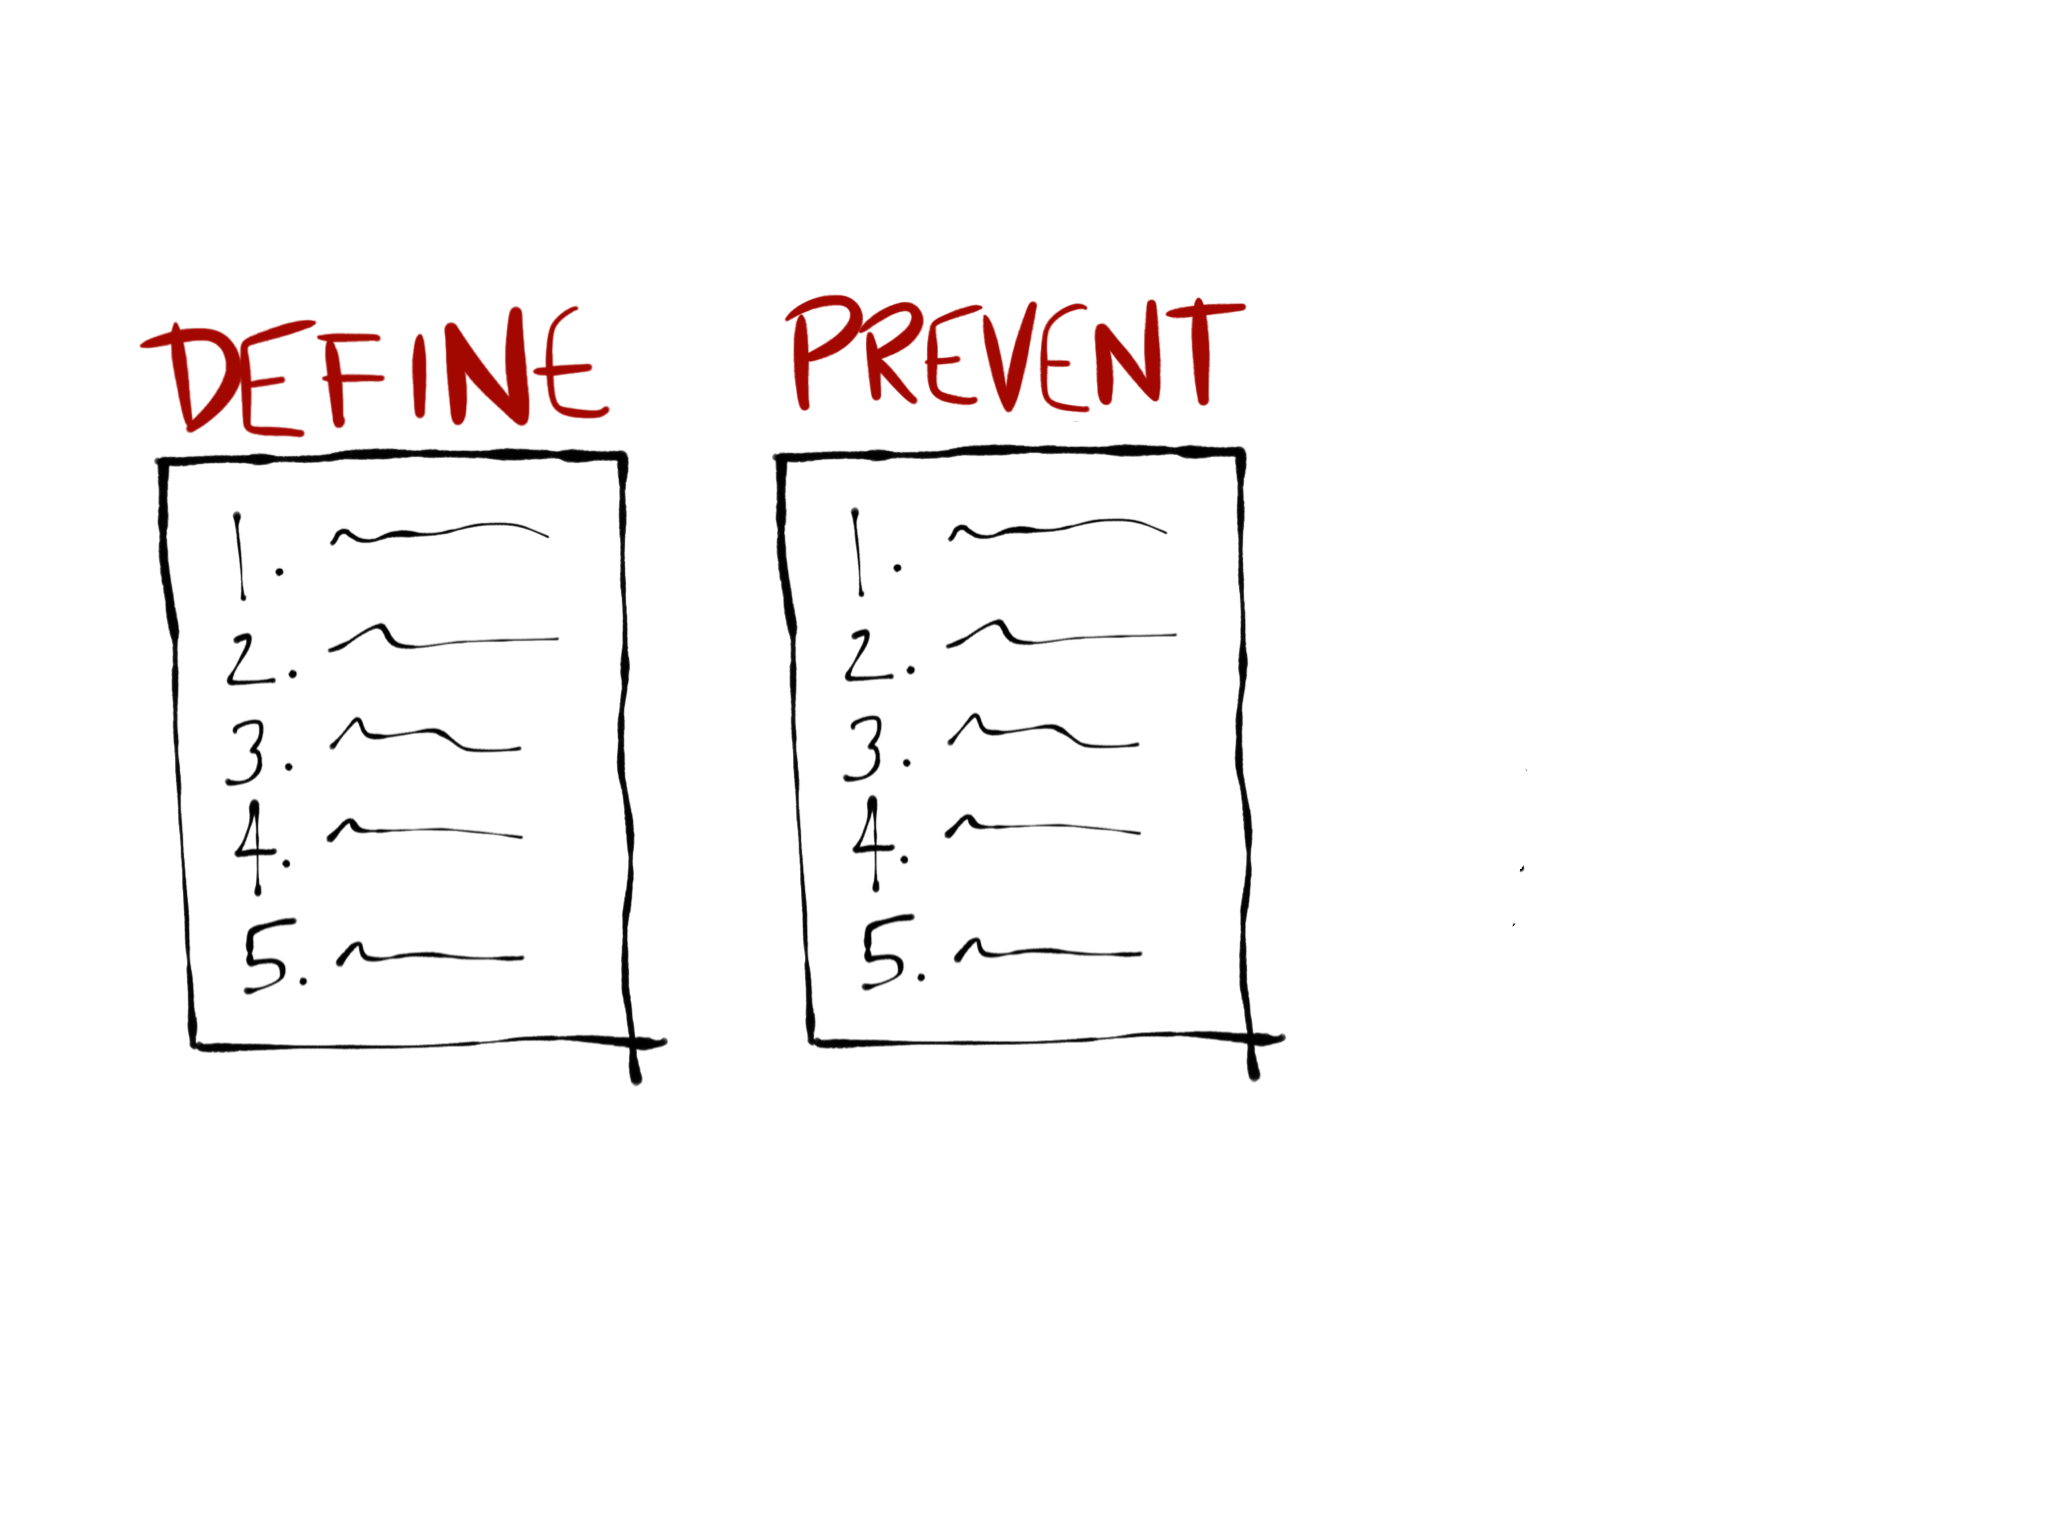 DEFINE
1.
2.
3.
4.
5.
PREVENT
1.
2.
3.
4.
5.